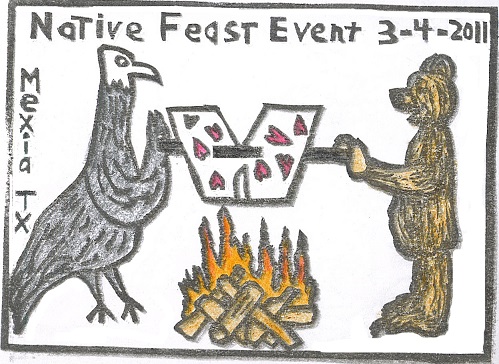 Native Feast Event 3-4-2011
Mexia TX